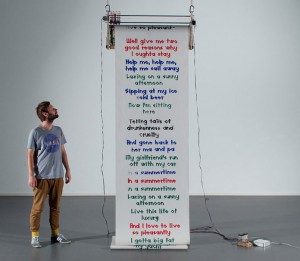 live so pleasantly
Well give me two
good reasons why
I oughta stay
Help me, help me,
help me sail away
Lazing on a sunny
afternoon
Sipping at my ice
cold beer
Now I'm sitting
here
Telling tales of
drunkenness and
cruelty
And gone back to
her ma and pa
My girlfriend's run
off with my car
In a summertime
In a summertime
In a summertime
Lazing on a sunny
afternoon
Live this life of
luxury
And I love to live
so pleasantly
I gotta big fat